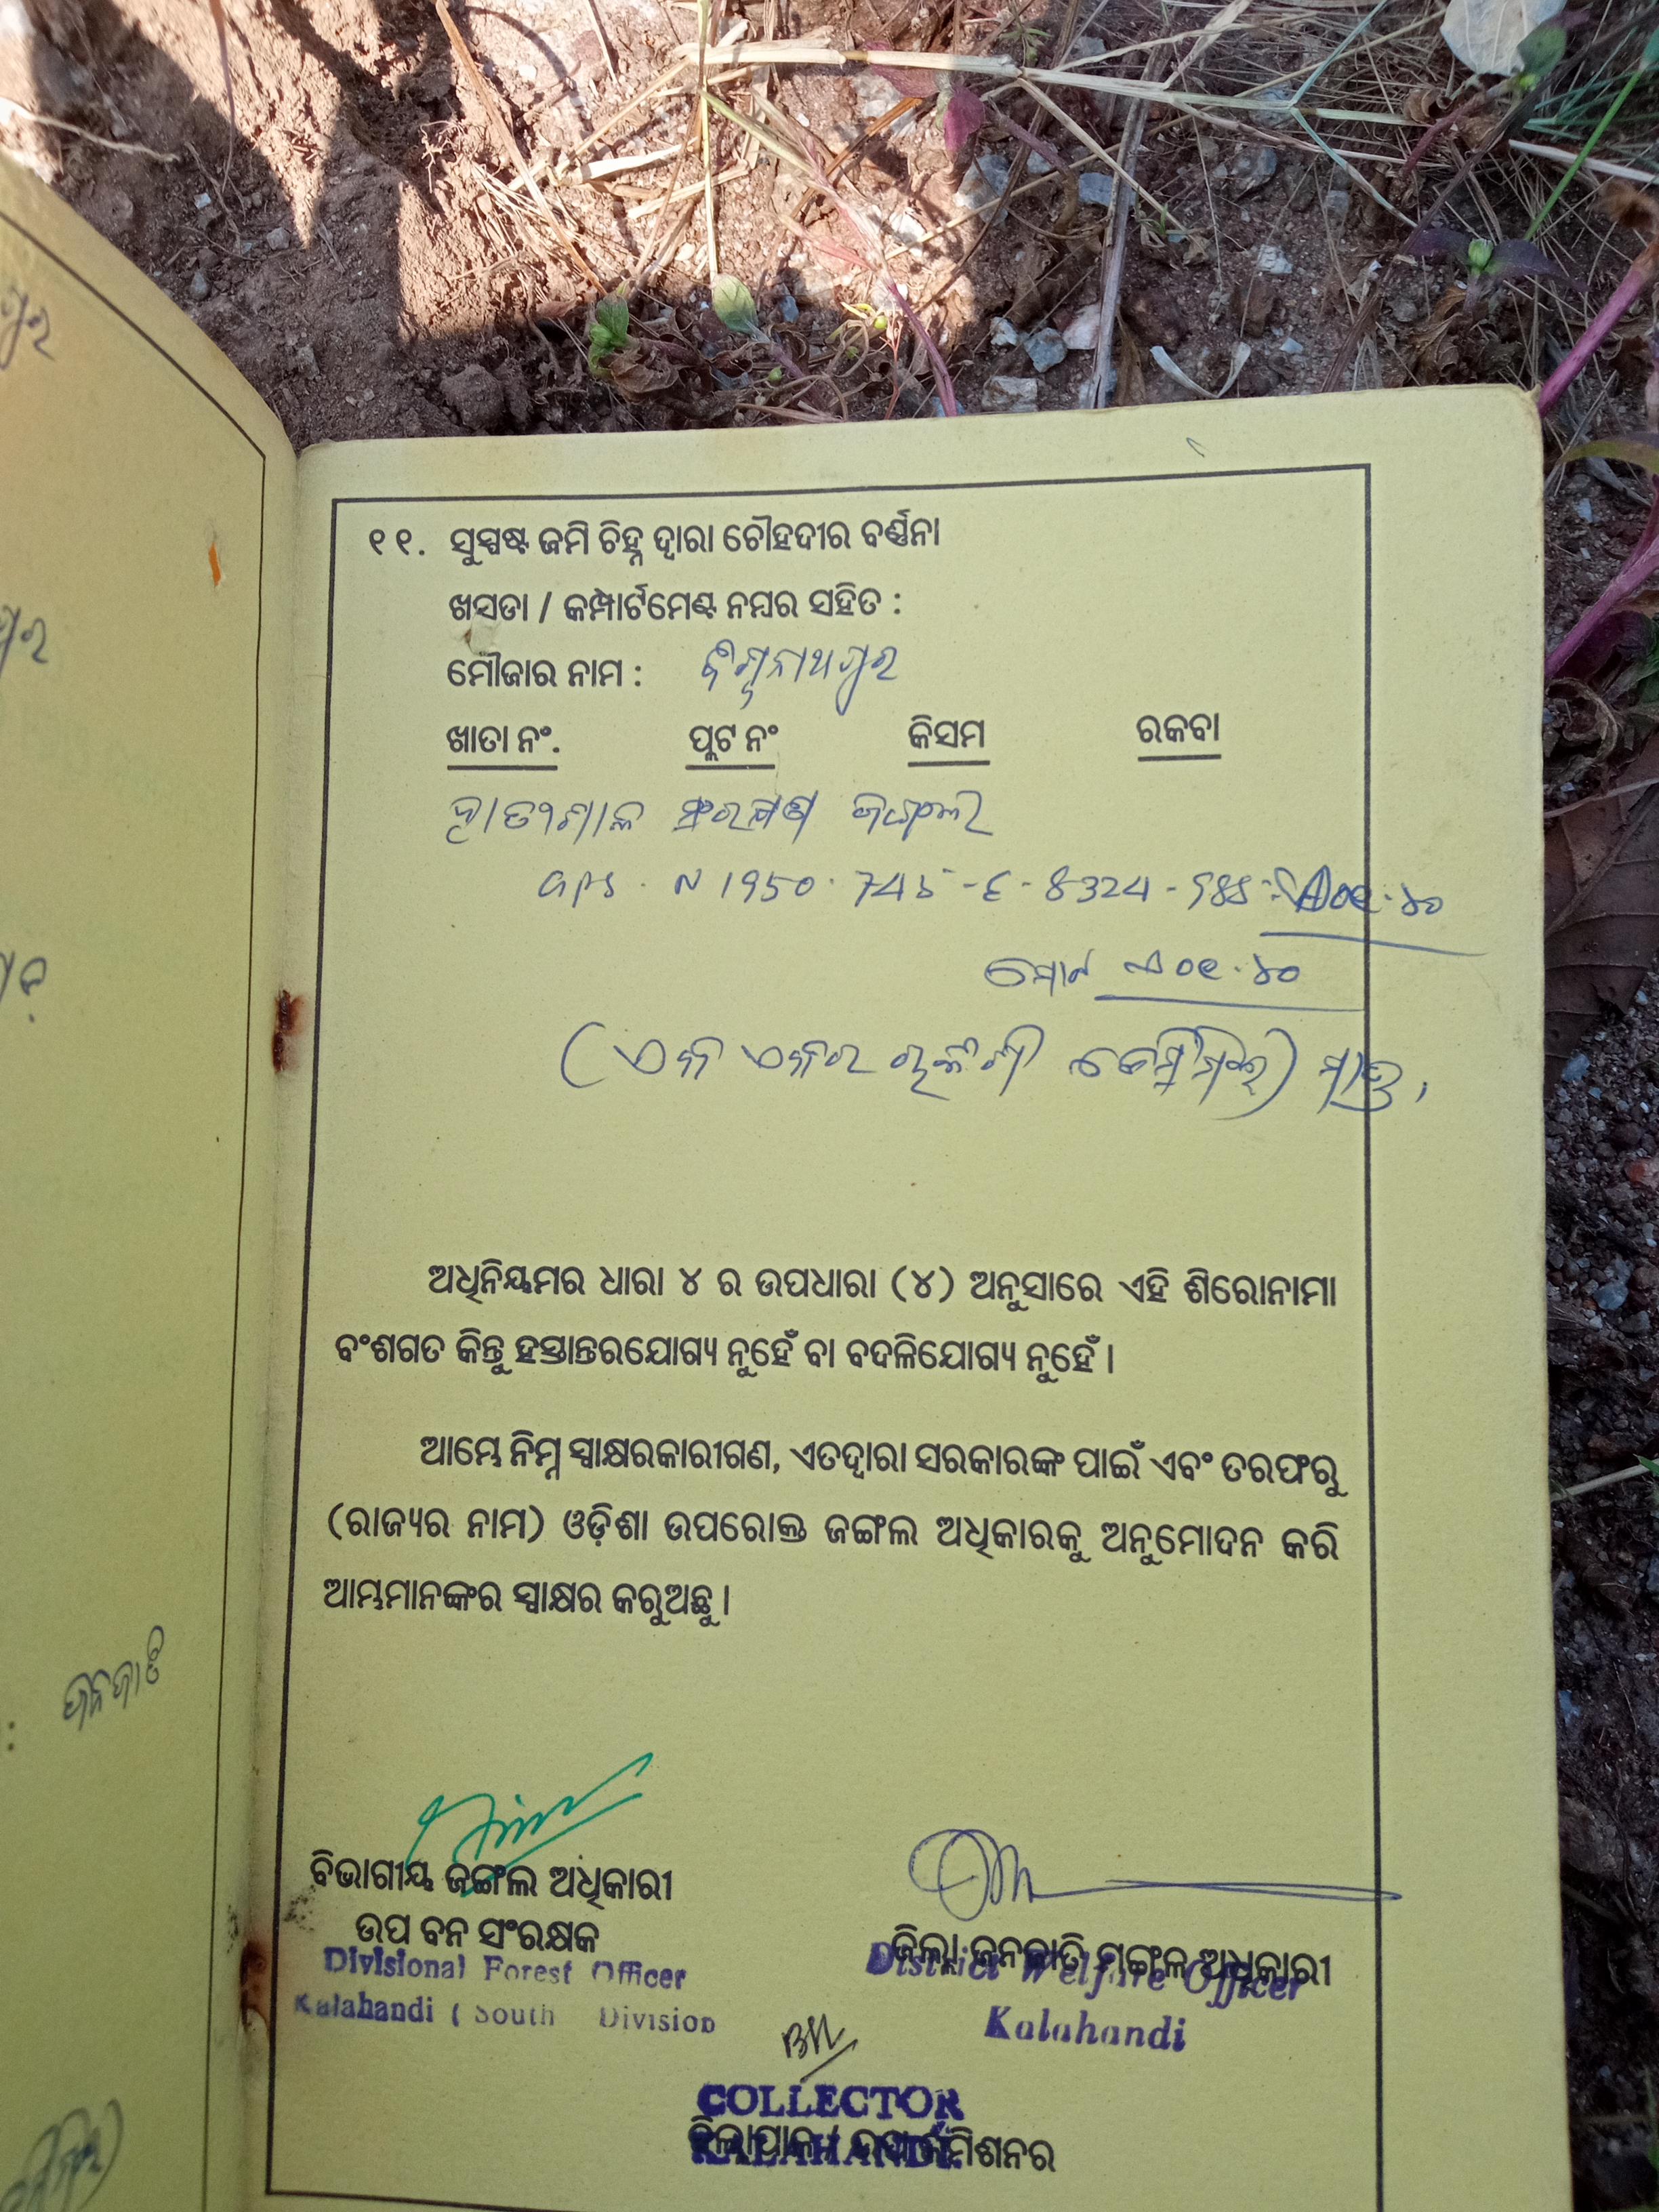 ୧୧. ସୁସ୍ପଷ୍ଟ ଜମି ଚିହ୍ନ ଦ୍ୱାରା ଚୌହଦୀର ବର୍ଣ୍ଣନା
ଖସଡା / କମ୍ପାର୍ଟମେଣ୍ଟ ନମ୍ବର ସହିତ :
ମୌଜାର ନାମ : ବିଶ୍ୱନାଥପୁର
ଖାତା ନଂ. ପ୍ଲଟ ନଂ କିସମ ରକବା
ସଂରକ୍ଷଣ ଜଙ୍ଗଲ
GPS . N 1950 .
ମୋଟ ଏ ୦୧.୪୦
(ଏକ ଏକର ଚାଳିଶି ଡେସିମିଲ) ମାତ୍ର,
ଅଧିନିୟମର ଧାରା ୪ ର ଉପଧାରା (୪) ଅନୁସାରେ ଏହି ଶିରୋନାମା
ବଂଶଗତ କିନ୍ତୁ ହସ୍ତାନ୍ତରଯୋଗ୍ୟ ନୁହେଁ ବା ବଦଳିଯୋଗ୍ୟ ନୁହେଁ ।
ଆମ୍ଭେ ନିମ୍ନ ସ୍ୱାକ୍ଷରକାରୀଗଣ, ଏତଦ୍ୱାରା ସରକାରଙ୍କ ପାଇଁ ଏବଂ ତରଫରୁ
(ରାଜ୍ୟର ନାମ) ଓଡ଼ିଶା ଉପରୋକ୍ତ ଜଙ୍ଗଲ ଅଧିକାରକୁ ଅନୁମୋଦନ କରି
ଆମ୍ଭମାନଙ୍କର ସ୍ୱାକ୍ଷର କରୁଅଛୁ ।
ଜନଜାତି
ବିଭାଗୀୟ ଜଙ୍ଗଲ ଅଧିକାରୀ
ଉପ ବନ ସଂରକ୍ଷକ
Divisional Forest Officer
Kalahandi ( South Division
ଜିଲ୍ଲା ଜନଜାତି ମଙ୍ଗଳ ଅଧିକାରୀ
District Welfare Officer
Kalahandi
COLLECTOR
ଜିଲ୍ଲାପାଳ / ଡେପୁଟି କମିଶନର
KALAHANDI